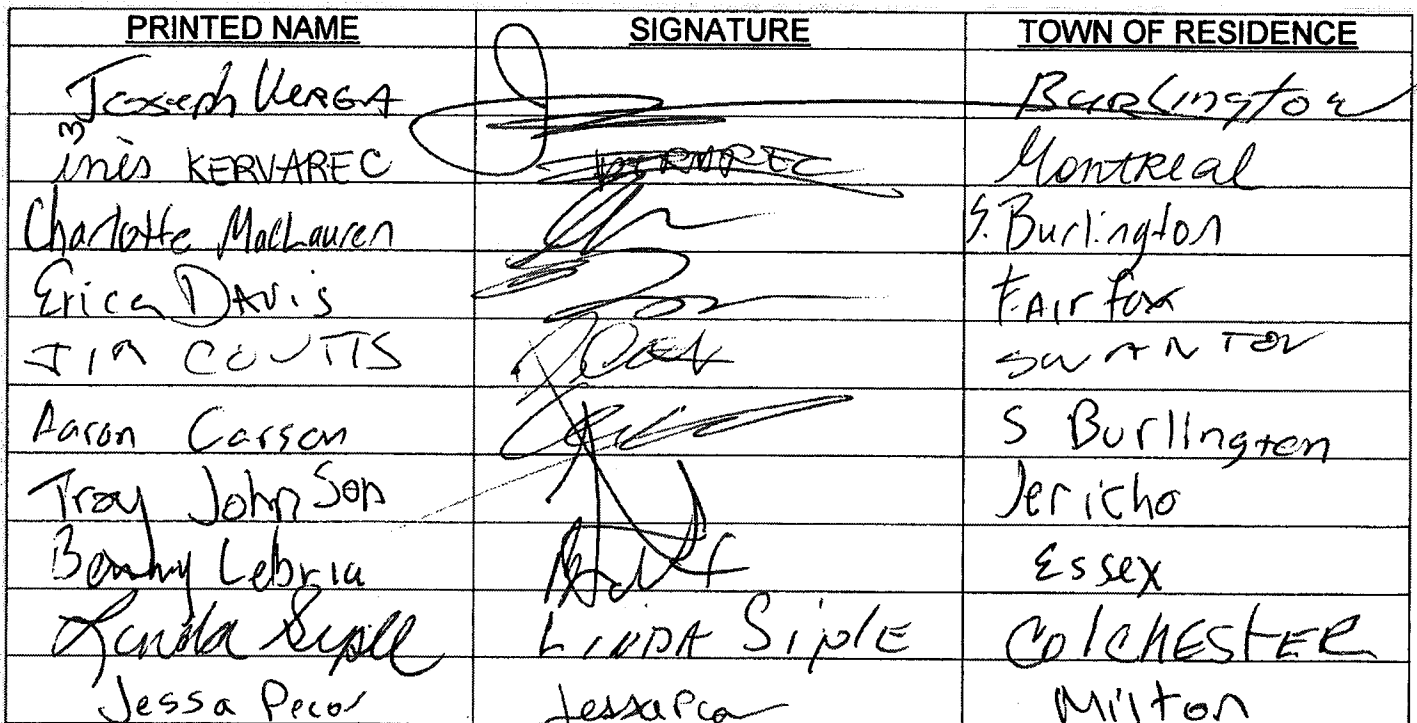 PRINTED NAME SIGNATURE TOWN OF RESIDENCE
Joseph Verga Burlington
inès KERVAREC KERVAREC Montreal
Charlotte MacLauren S. Burlington
Erica DAVis FAIrfax
JIM COUTTS SWANTON
Aaron Carson S Burlington
Troy Johnson Jericho
Benny Lebria Essex
Linda Siple LINDA SiplE COlCHESTER
Jessa Pecor Milton